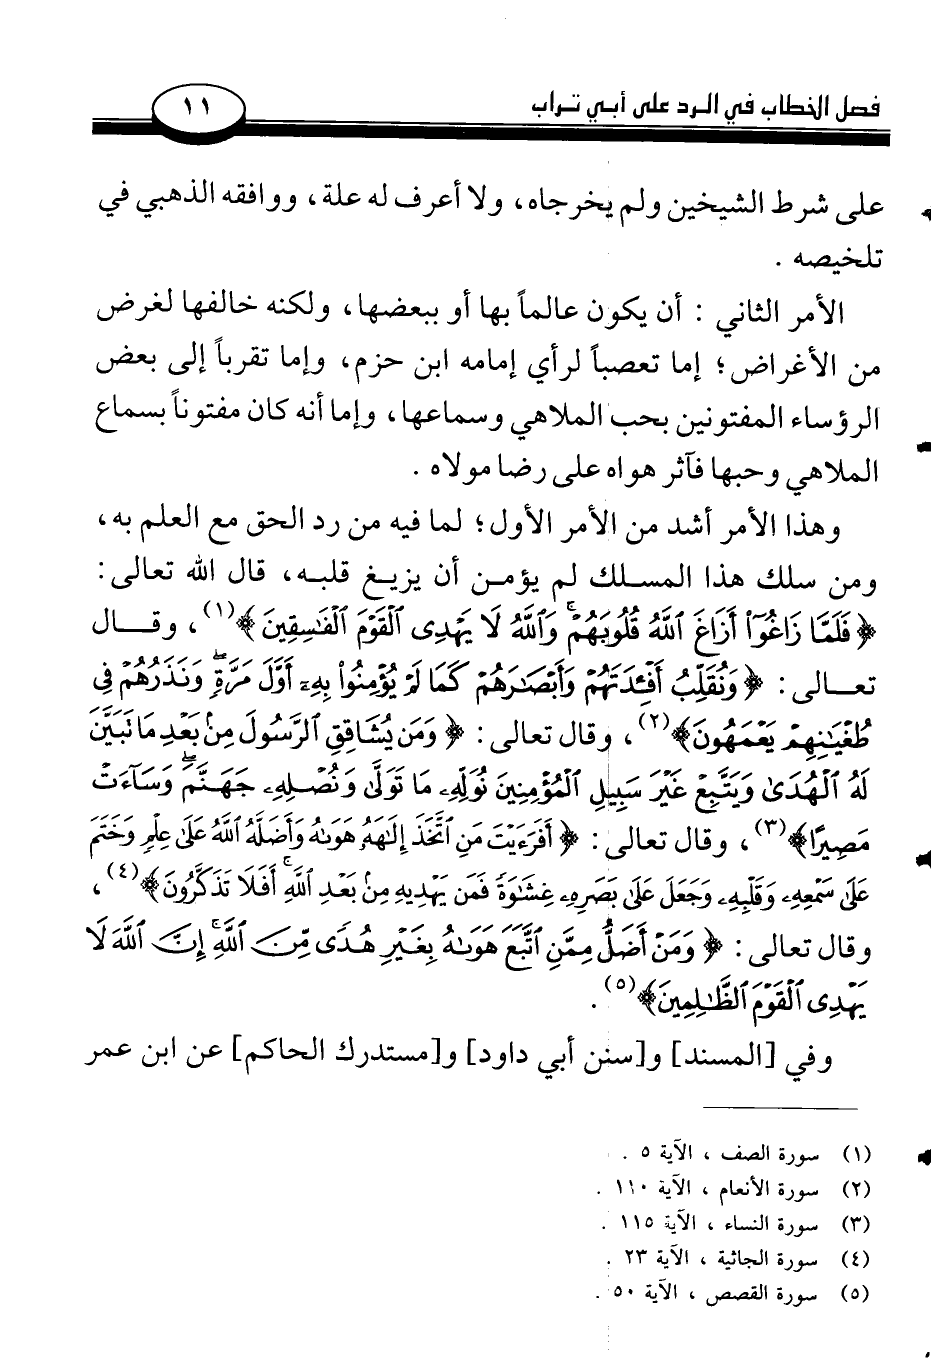 فصل الخطاب في الرد على أبي تراب
١١
على شرط الشيخين ولم يخرجاه، ولا أعرف له علة، ووافقه الذهبي في
تلخيصه .
الأمر الثاني : أن يكون عالماً بها أو ببعضها، ولكنه خالفها لغرض
من الأغراض؛ إما تعصباً لرأي إمامه ابن حزم، وإما تقرباً إلى بعض
الرؤساء المفتونين بحب الملاهي وسماعها، وإما أنه كان مفتوناً بسماع
الملاهي وحبها فآثر هواه على رضا مولاه .
وهذا الأمر أشد من الأمر الأول؛ لما فيه من رد الحق مع العلم به،
ومن سلك هذا المسلك لم يؤمن أن يزيغ قلبه، قال الله تعالى:
﴿فَلَمَّا زَاغُوٓا۟ أَزَاغَ ٱللَّهُ قُلُوبَهُمْ ۚ وَٱللَّهُ لَا يَهْدِى ٱلْقَوْمَ ٱلْفَـٰسِقِينَ﴾(١)، وقـــال
تعـــالى : ﴿وَنُقَلِّبُ أَفْـِٔدَتَهُمْ وَأَبْصَـٰرَهُمْ كَمَا لَمْ يُؤْمِنُوا۟ بِهِۦٓ أَوَّلَ مَرَّةٍ وَنَذَرُهُمْ فِى
طُغْيَـٰنِهِمْ يَعْمَهُونَ﴾(٢)، وقال تعالى : ﴿وَمَن يُشَاقِقِ ٱلرَّسُولَ مِنۢ بَعْدِ مَا تَبَيَّنَ
لَهُ ٱلْهُدَىٰ وَيَتَّبِعْ غَيْرَ سَبِيلِ ٱلْمُؤْمِنِينَ نُوَلِّهِۦ مَا تَوَلَّىٰ وَنُصْلِهِۦ جَهَنَّمَ ۖ وَسَآءَتْ
مَصِيرًا﴾(٣)، وقال تعالى : ﴿أَفَرَءَيْتَ مَنِ ٱتَّخَذَ إِلَـٰهَهُۥ هَوَىٰهُ وَأَضَلَّهُ ٱللَّهُ عَلَىٰ عِلْمٍ وَخَتَمَ
عَلَىٰ سَمْعِهِۦ وَقَلْبِهِۦ وَجَعَلَ عَلَىٰ بَصَرِهِۦ غِشَـٰوَةً فَمَن يَهْدِيهِ مِنۢ بَعْدِ ٱللَّهِ ۚ أَفَلَا تَذَكَّرُونَ﴾(٤)،
وقال تعالى : ﴿وَمَنْ أَضَلُّ مِمَّنِ ٱتَّبَعَ هَوَىٰهُ بِغَيْرِ هُدًى مِّنَ ٱللَّهِ ۚ إِنَّ ٱللَّهَ لَا
يَهْدِى ٱلْقَوْمَ ٱلظَّـٰلِمِينَ﴾(٥) .
وفي [المسند] و[سنن أبي داود] و[مستدرك الحاكم] عن ابن عمر
(١) سورة الصف ، الآية ٥ .
(٢) سورة الأنعام ، الآية ١١٠ .
(٣) سورة النساء ، الآية ١١٥ .
(٤) سورة الجاثية ، الآية ٢٣ .
(٥) سورة القصص ، الآية ٥٠ .